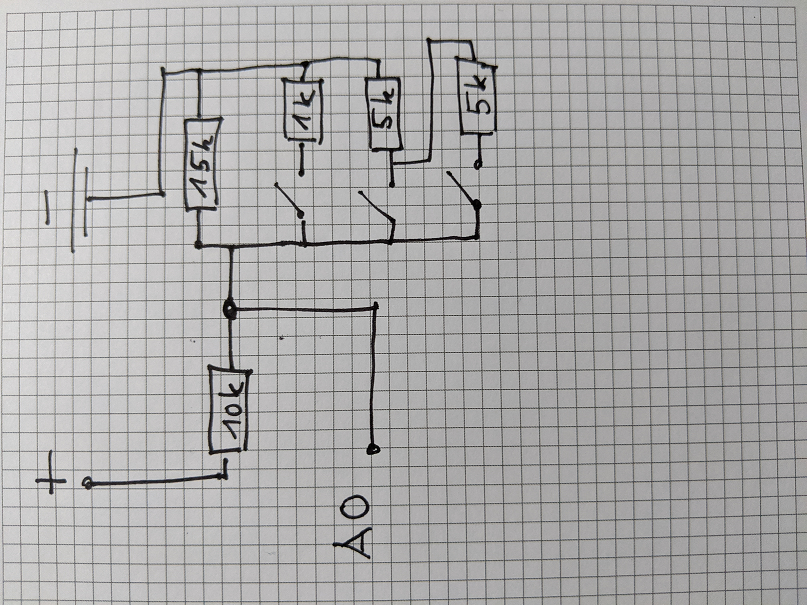 15k
1k
5k
5k
10k
+
-
A0